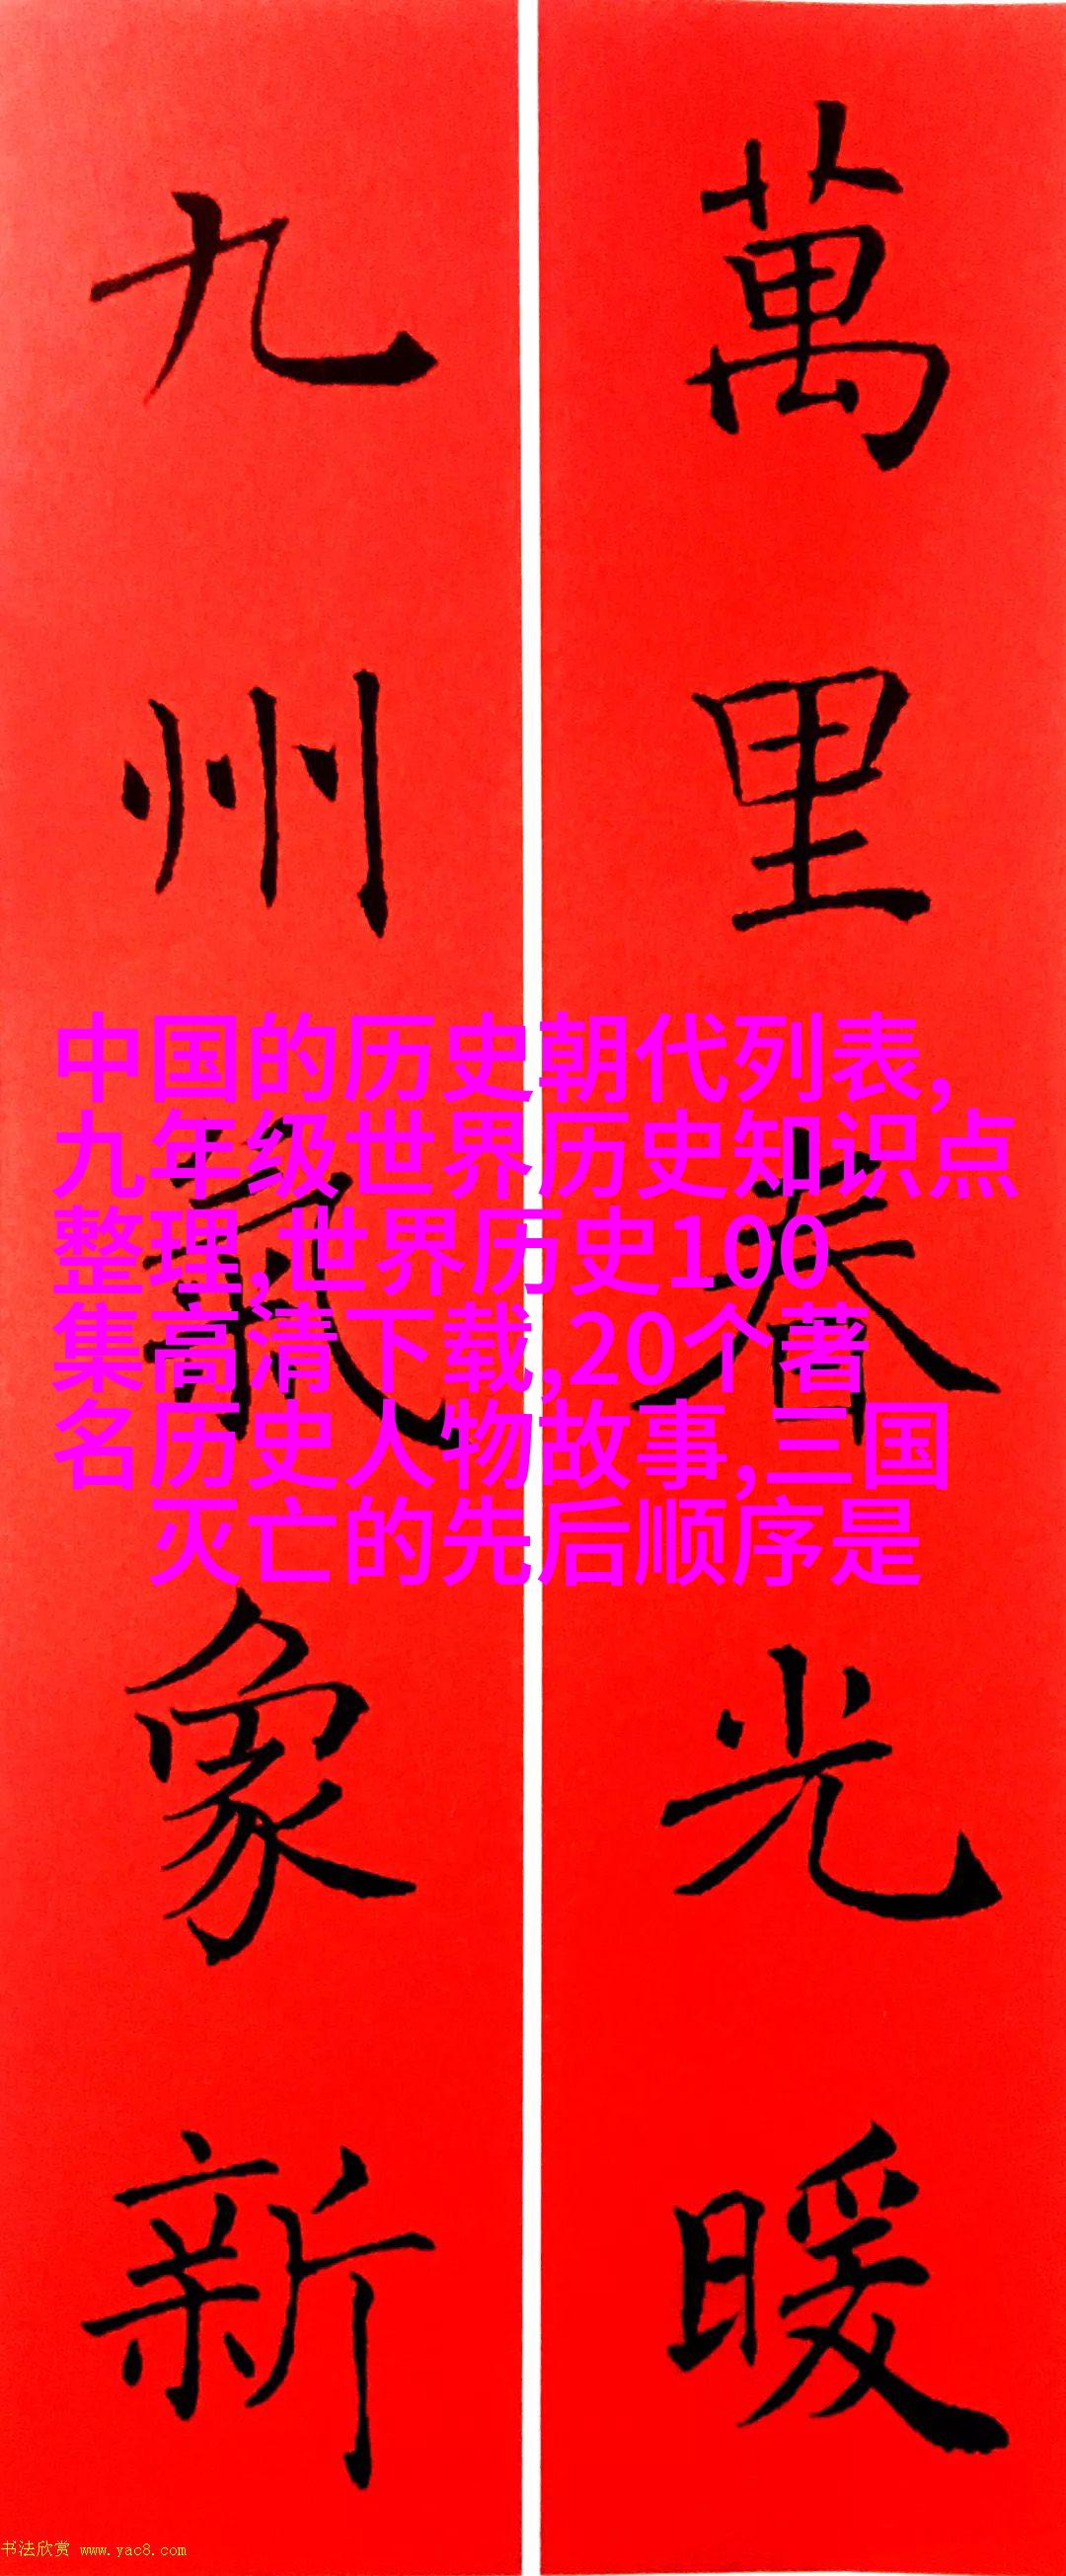 萬里春光暖
九州氣象新
中国的历史朝代列表,
九年级世界历史知识点
整理,世界历史100
集高清下载,20个著
名历史人物故事,三国
灭亡的先后顺序是
书法欣赏 www.yac8.com